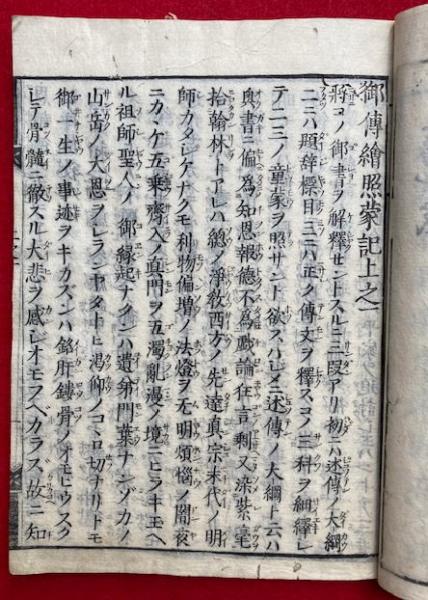 御傳繪照蒙記上之一
將ニコノ御書ヲ解釋セントスルニ三段アリ初ニハ述傳ノ大綱
二ニハ題辞標目三ニハ正ク傳文ヲ釋スコノ三科ヲ細繹シ
テ二三ノ童蒙ヲ照サント欲スハジメニ述傳ノ大綱ト云ハ
奥書ニ偏為知恩報德不為戯論狂言剰又染紫毫
拾翰林トアレハ總ノ淨教西方ノ先達真宗末代ノ明
師カタジケナクモ利物偏増ノ法燈ヲ无明煩惱ノ闇夜
ニカヽケ五乗齊入ノ真門ヲ五濁亂漫ノ境ニヒラキモヘ
ル祖師聖人ノ御縁起ナクンハ遺弟門葉ナンゾカノ
山岳ノ大恩ヲシランヤタトヒ渇仰ノコヽロ切ナリトモ
御一生ノ事迹ヲキカズンハ銘肝鏤骨ノオモヒウスク
シテ骨髄ニ徹スル大悲ヲ感シオモフベカラス故ニ知